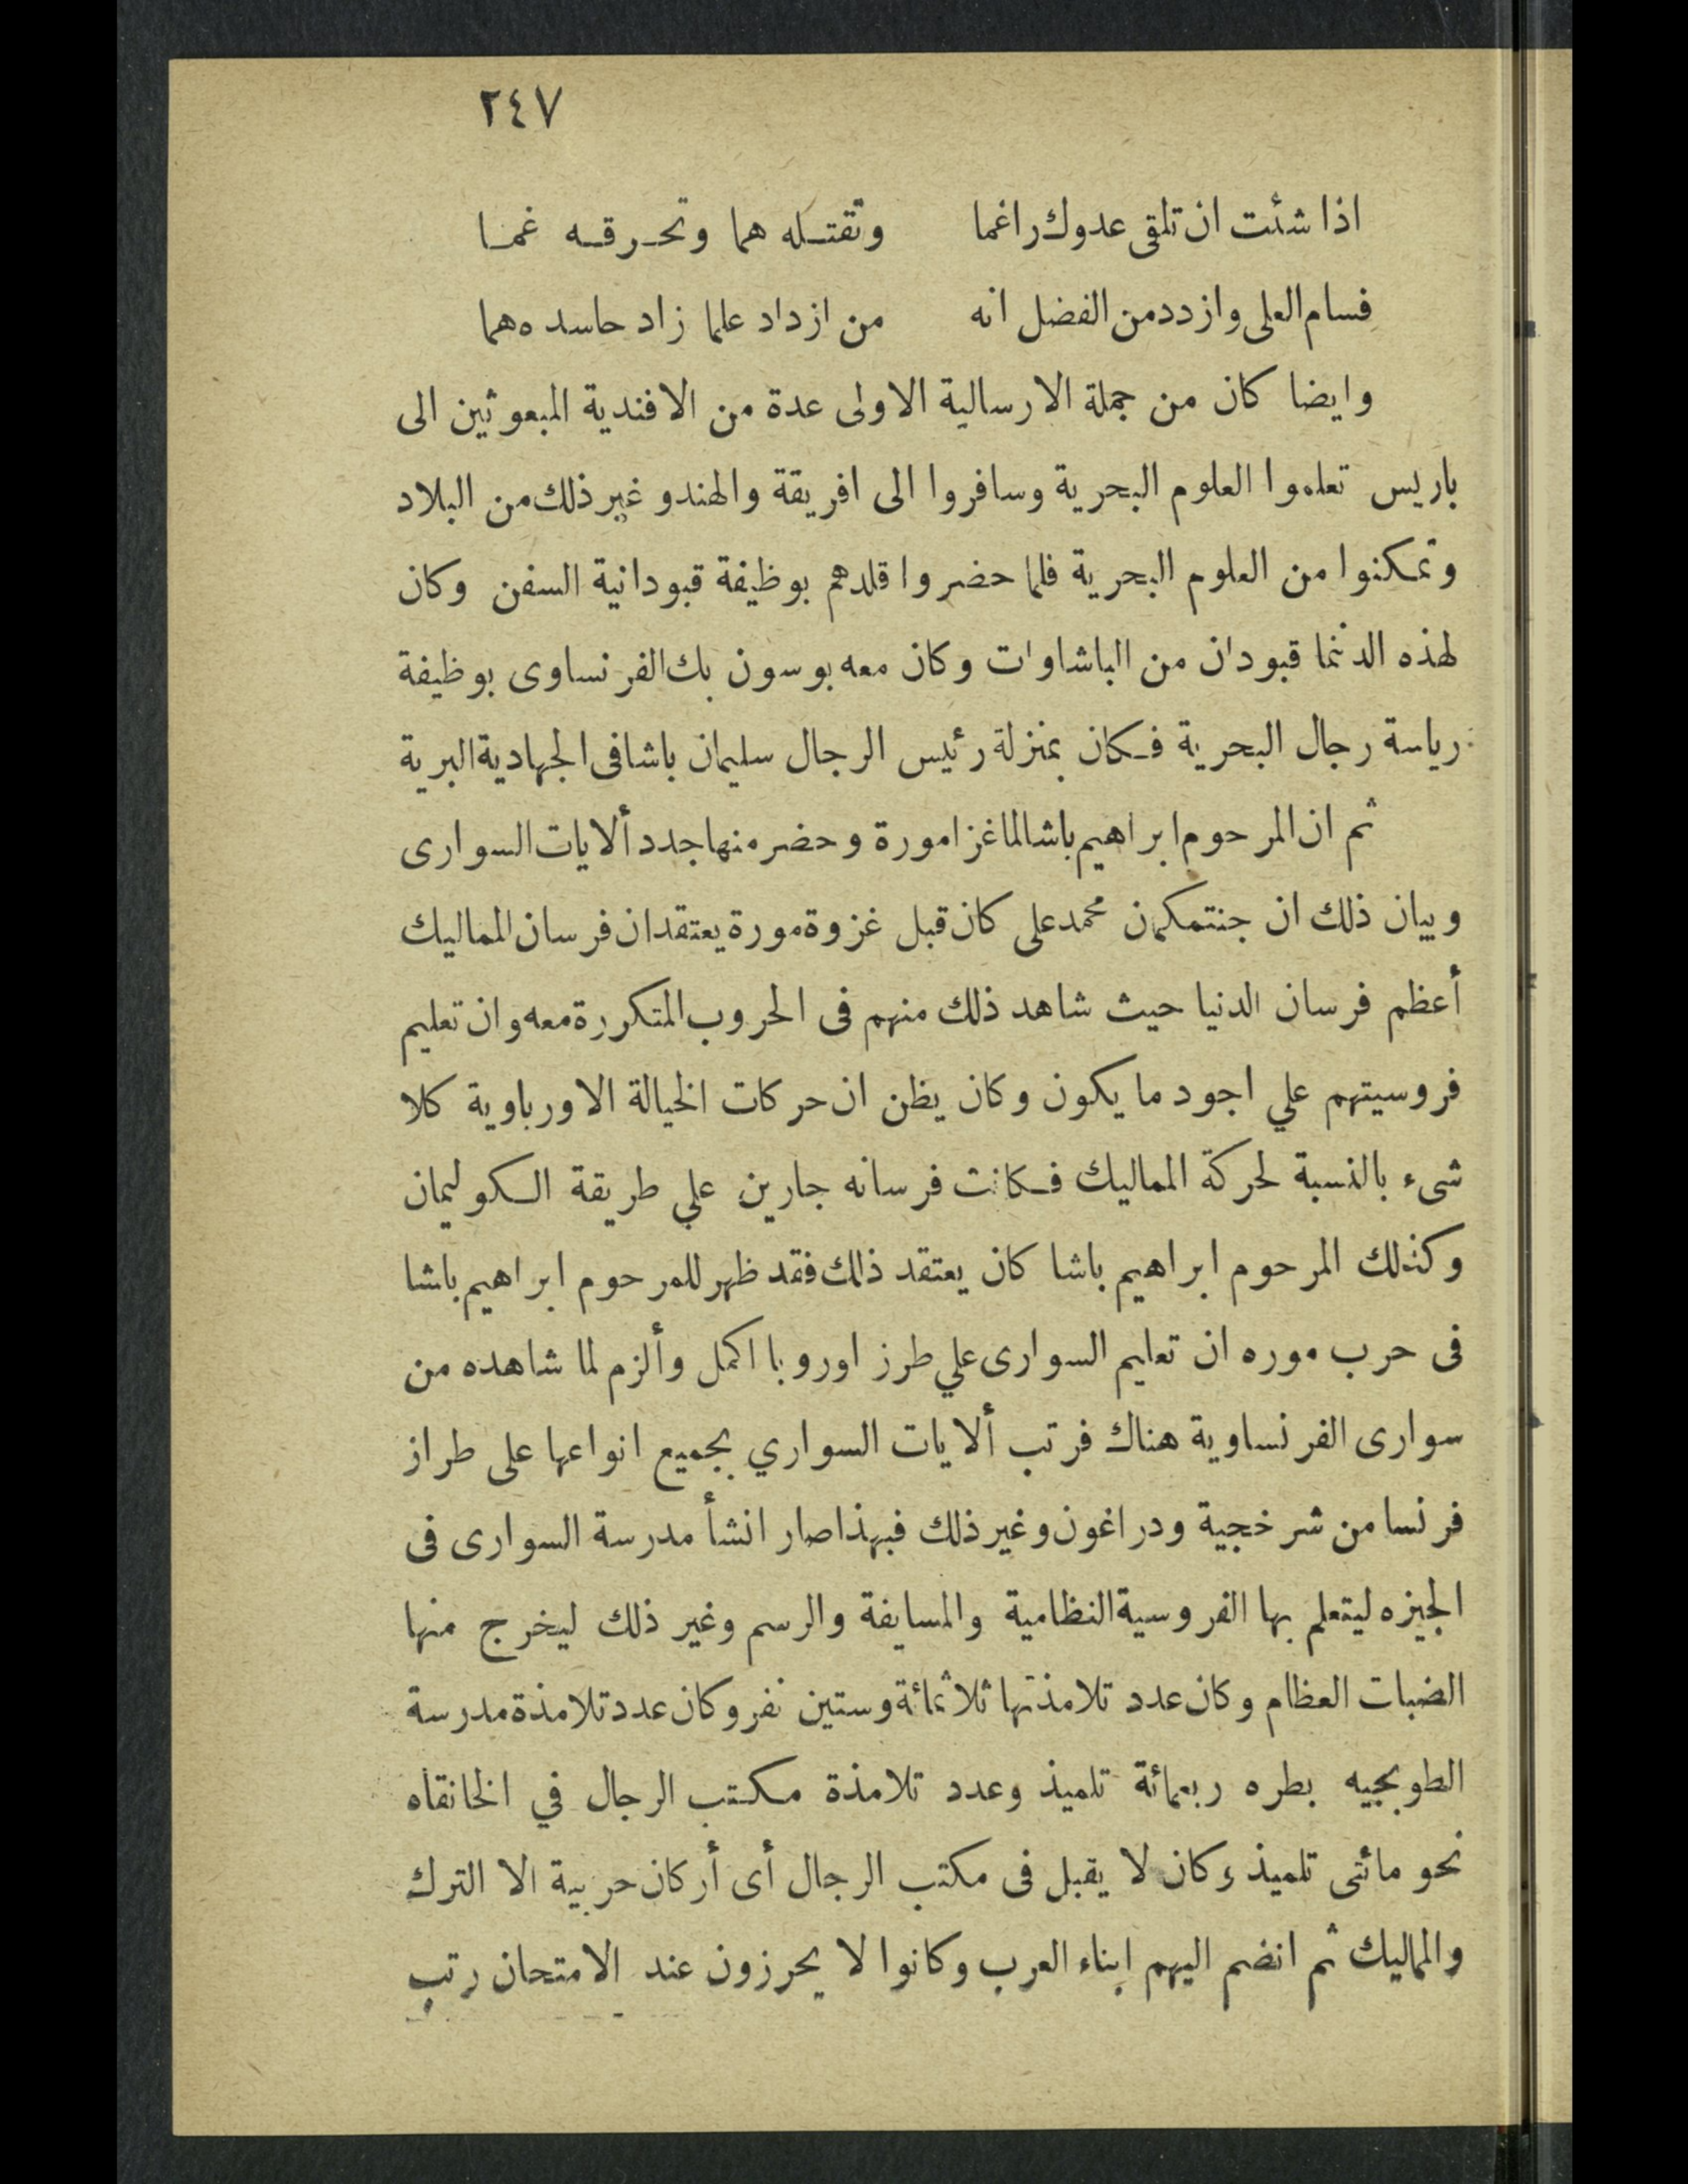 ٢٤٧
اذا شئت ان تلقى عدوك راغما وتقتله هما وتحرقه غما
فسام العلى وازدد من الفضل انه من ازداد علما زاد حاسده هما
وايضا كان من جملة الارسالية الاولى عدة من الافندية المبعوثين الى
باريس تعلموا العلوم البحرية وسافروا الى افريقة والهند و غير ذلك من البلاد
وتمكنوا من العلوم البحرية فلما حضروا قلدهم بوظيفة قبودانية السفن وكان
لهذه الدننما قبودان من الباشاوات وكان معه بوسون بك الفرنساوى بوظيفة
رياسة رجال البحرية فكان بمنزلة رئيس الرجال سليمان باشا فى الجهادية البرية
ثم ان المرحوم ابراهيم باشا لما غزا مورة وحضر منها جدد ألايات السوارى
وبيان ذلك ان جنتمكان محمد على كان قبل غزوة مورة يعتقد ان فرسان المماليك
أعظم فرسان الدنيا حيث شاهد ذلك منهم فى الحروب المتكررة معه وان تعليم
فروسيتهم علي اجود ما يكون وكان يظن ان حركات الخيالة الاورباوية كلا
شىء بالنسبة لحركة المماليك فكانت فرسانه جارين علي طريقة الكوليمان
وكذلك المرحوم ابراهيم باشا كان يعتقد ذلك فقد ظهر للمرحوم ابراهيم باشا
فى حرب موره ان تعليم السوارى علي طرز اوروبا اكمل وألزم لما شاهده من
سوارى الفرنساوية هناك فرتب ألايات السواري بجميع انواعها على طراز
فرنسا من شرخجية ودراغون وغير ذلك فبهذا صار انشأ مدرسة السوارى فى
الجيزه ليتعلم بها الفروسية النظامية والمسايفة والرسم وغير ذلك ليخرج منها
الضبات العظام وكان عدد تلامذتها ثلاثمائة وستين نفر وكان عدد تلامذة مدرسة
الطوبجيه بطره ربعمائة تلميذ وعدد تلامذة مكتب الرجال في الخانقاه
نحو مائتى تلميذ وكان لا يقبل فى مكتب الرجال أى أركان حربية الا الترك
والمماليك ثم انضم اليهم ابناء العرب وكانوا لا يحرزون عند الامتحان رتب